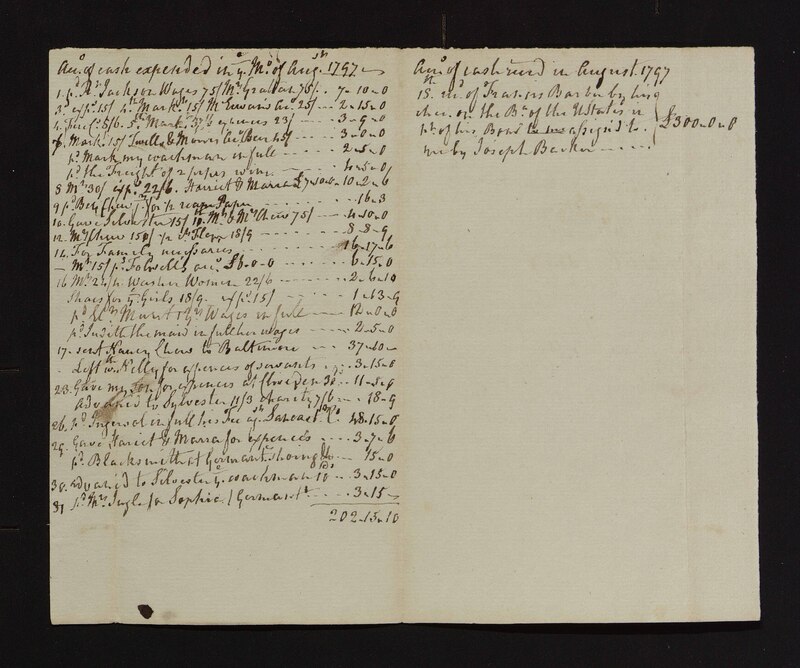 Acct. of cash expended in ye. Mo. of Augst. 1797
1. pd. Jackson Wages 75/ Mr. Graham 75/. 7-10-0
3. exps. 15/ Mark. 15/ Mr. Ewans ac. 25/ - 2-15-0
5/6. Mark. expences 23/ 3-9-0
7. Mark. 15/ & Morris ac. 45/ 3-0-0
pd. Mark my coachman in full 2-5-0
pd. the freight of 2 pipes wine 4-5-0
8 Mr. 30/ exps. 22/6. Harriet & Maria £7-10-0 10-2-6
9 pd. Benj. Chew Jr. for ream Paper 16-3
10. Gave Silvester 15/ 10th. M. & M. Chew 75/ 4-10-0
12. M. Chew 150/ 18/9 8-8-9
14. For Family necessaries 16-17-6
- Mr. 15/ pd. Folwells ac. £6-0-0 6-15-0
16 Washer Women 22/6 2-6-10
Shoes for ye. Girls 18/9. exps. 15/ 1-13-9
pd. Wages in full 12-0-0
pd. Judith the maid in full her wages 2-5-0
17. sent Nancy Chew to Baltimore 37-10-
Left wth. Kelly for expences of servants 3-15-0
23. Gave my son for expences at Cliveden 11-5-0
Advanced to Sylvester 11/3 charity 7/6 18-9
26. pd. Ingersol in full his Fee agt. Lancastr. Co. 48-15-0
29. Gave Hariet & Maria for expences 3-7-6
pd. Blacksmith at Germantn. shoeing 15-0
30. Advanced to Silvester ye. coachman 10 Ds. 3-15-0
31 pd. Mrs. Ingle for Sophia / Germant. 3-15-
202-15-10
Acct. of cash recd in August 1797
15th. recd. of Francis Barber by his
check on the Bk. of the U States in
pt. of his Bond assigned to
me by Joseph Barker
£300-0-0